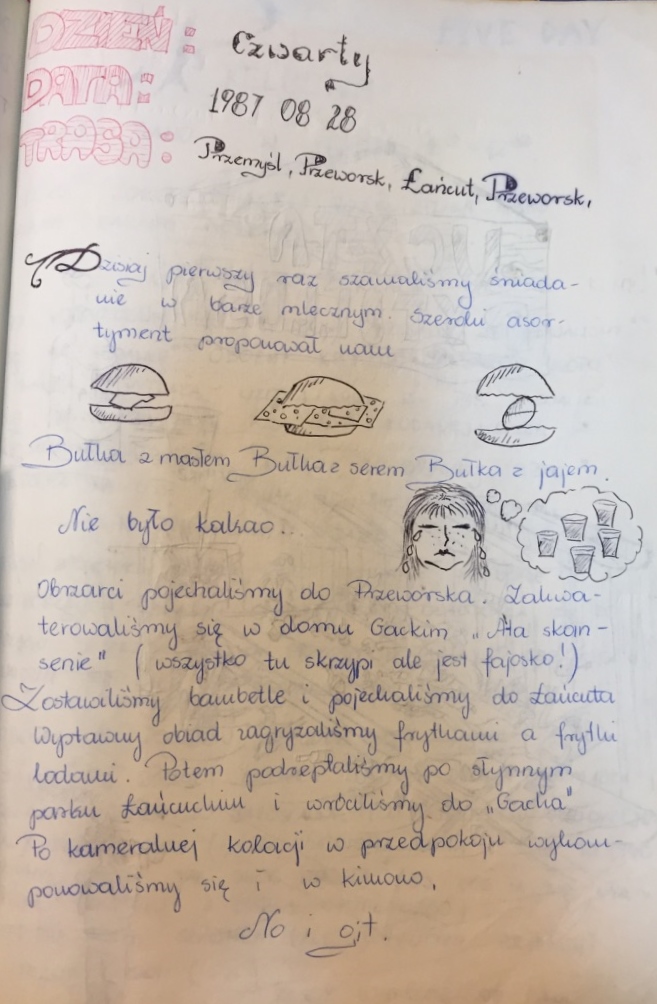 DZIEŃ: Czwarty
DATA: 1987 08 28
TRASA: Przemyśl, Przeworsk, Łańcut, Przeworsk,
Dzisiaj pierwszy raz szamaliśmy śniada-
nie w barze mlecznym. Szeroki asor-
tyment proponował nam
Bułka z masłem Bułka z serem Bułka z jajem.
Nie było kakao..
Obżarci pojechaliśmy do Przeworska. Zakwa-
terowaliśmy się w domu Gackim „Ała skan-
senie" (wszystko tu skrzypi ale jest fajosko!)
Zostawiliśmy bambetle i pojechaliśmy do Łańcuta
Wyptawny obiad zagryzaliśmy frytkami a frytki
lodami. Potem podreptaliśmy po słynnym
parku Łańcuckim i wróciliśmy do „Gacka"
Po kameralnej kolacji w przedpokoju wykom-
ponowaliśmy się i w kimono.
No i git.